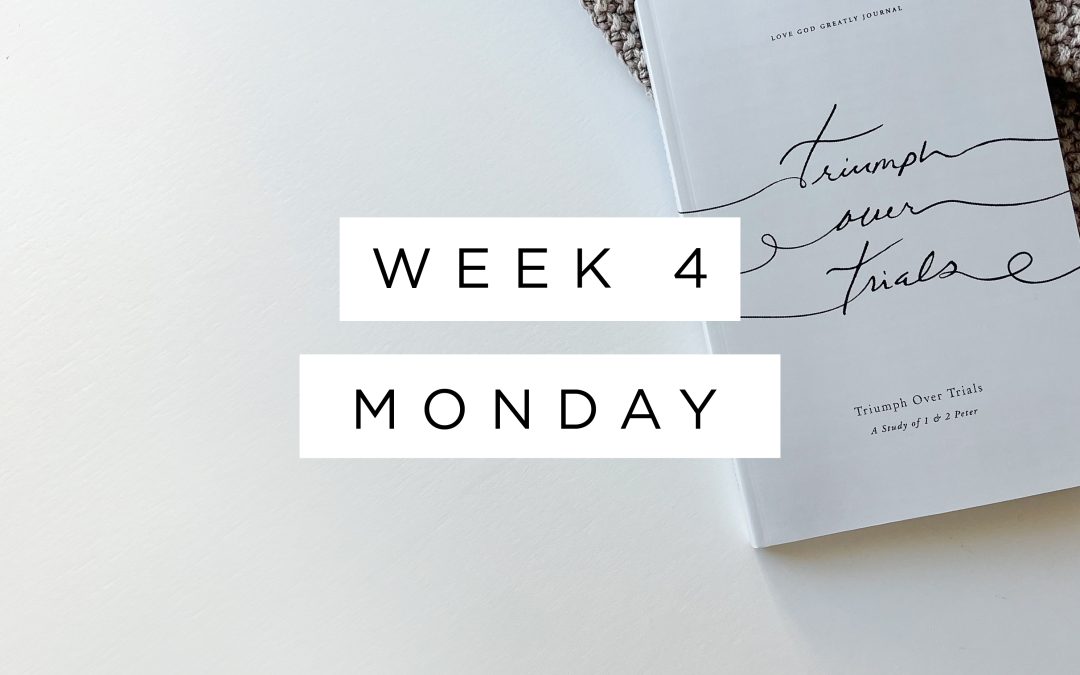 LOVE GOD GREATLY JOURNAL
Triumph
over
Trials
WEEK 4
MONDAY
Triumph Over Trials
A Study of 1 & 2 Peter